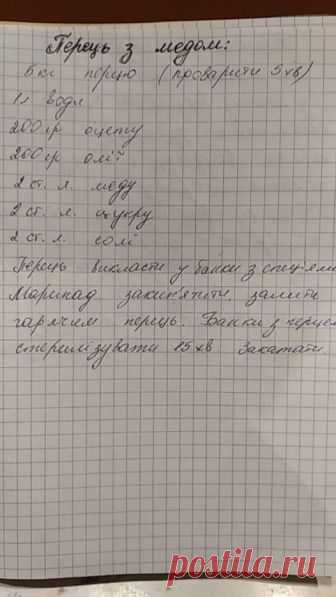 Перець з медом:
6кг перцю (проварити 5хв)
1л води
200гр оцету
260гр олії
2 ст. л. меду
2 ст. л. цукру
2 ст. л. солі
Перець викласти у банки з спеціями
Маринад закип'ятити, залити
гарячим перець. Банки з перцем
стерилізувати 15хв Закатати
postila.ru